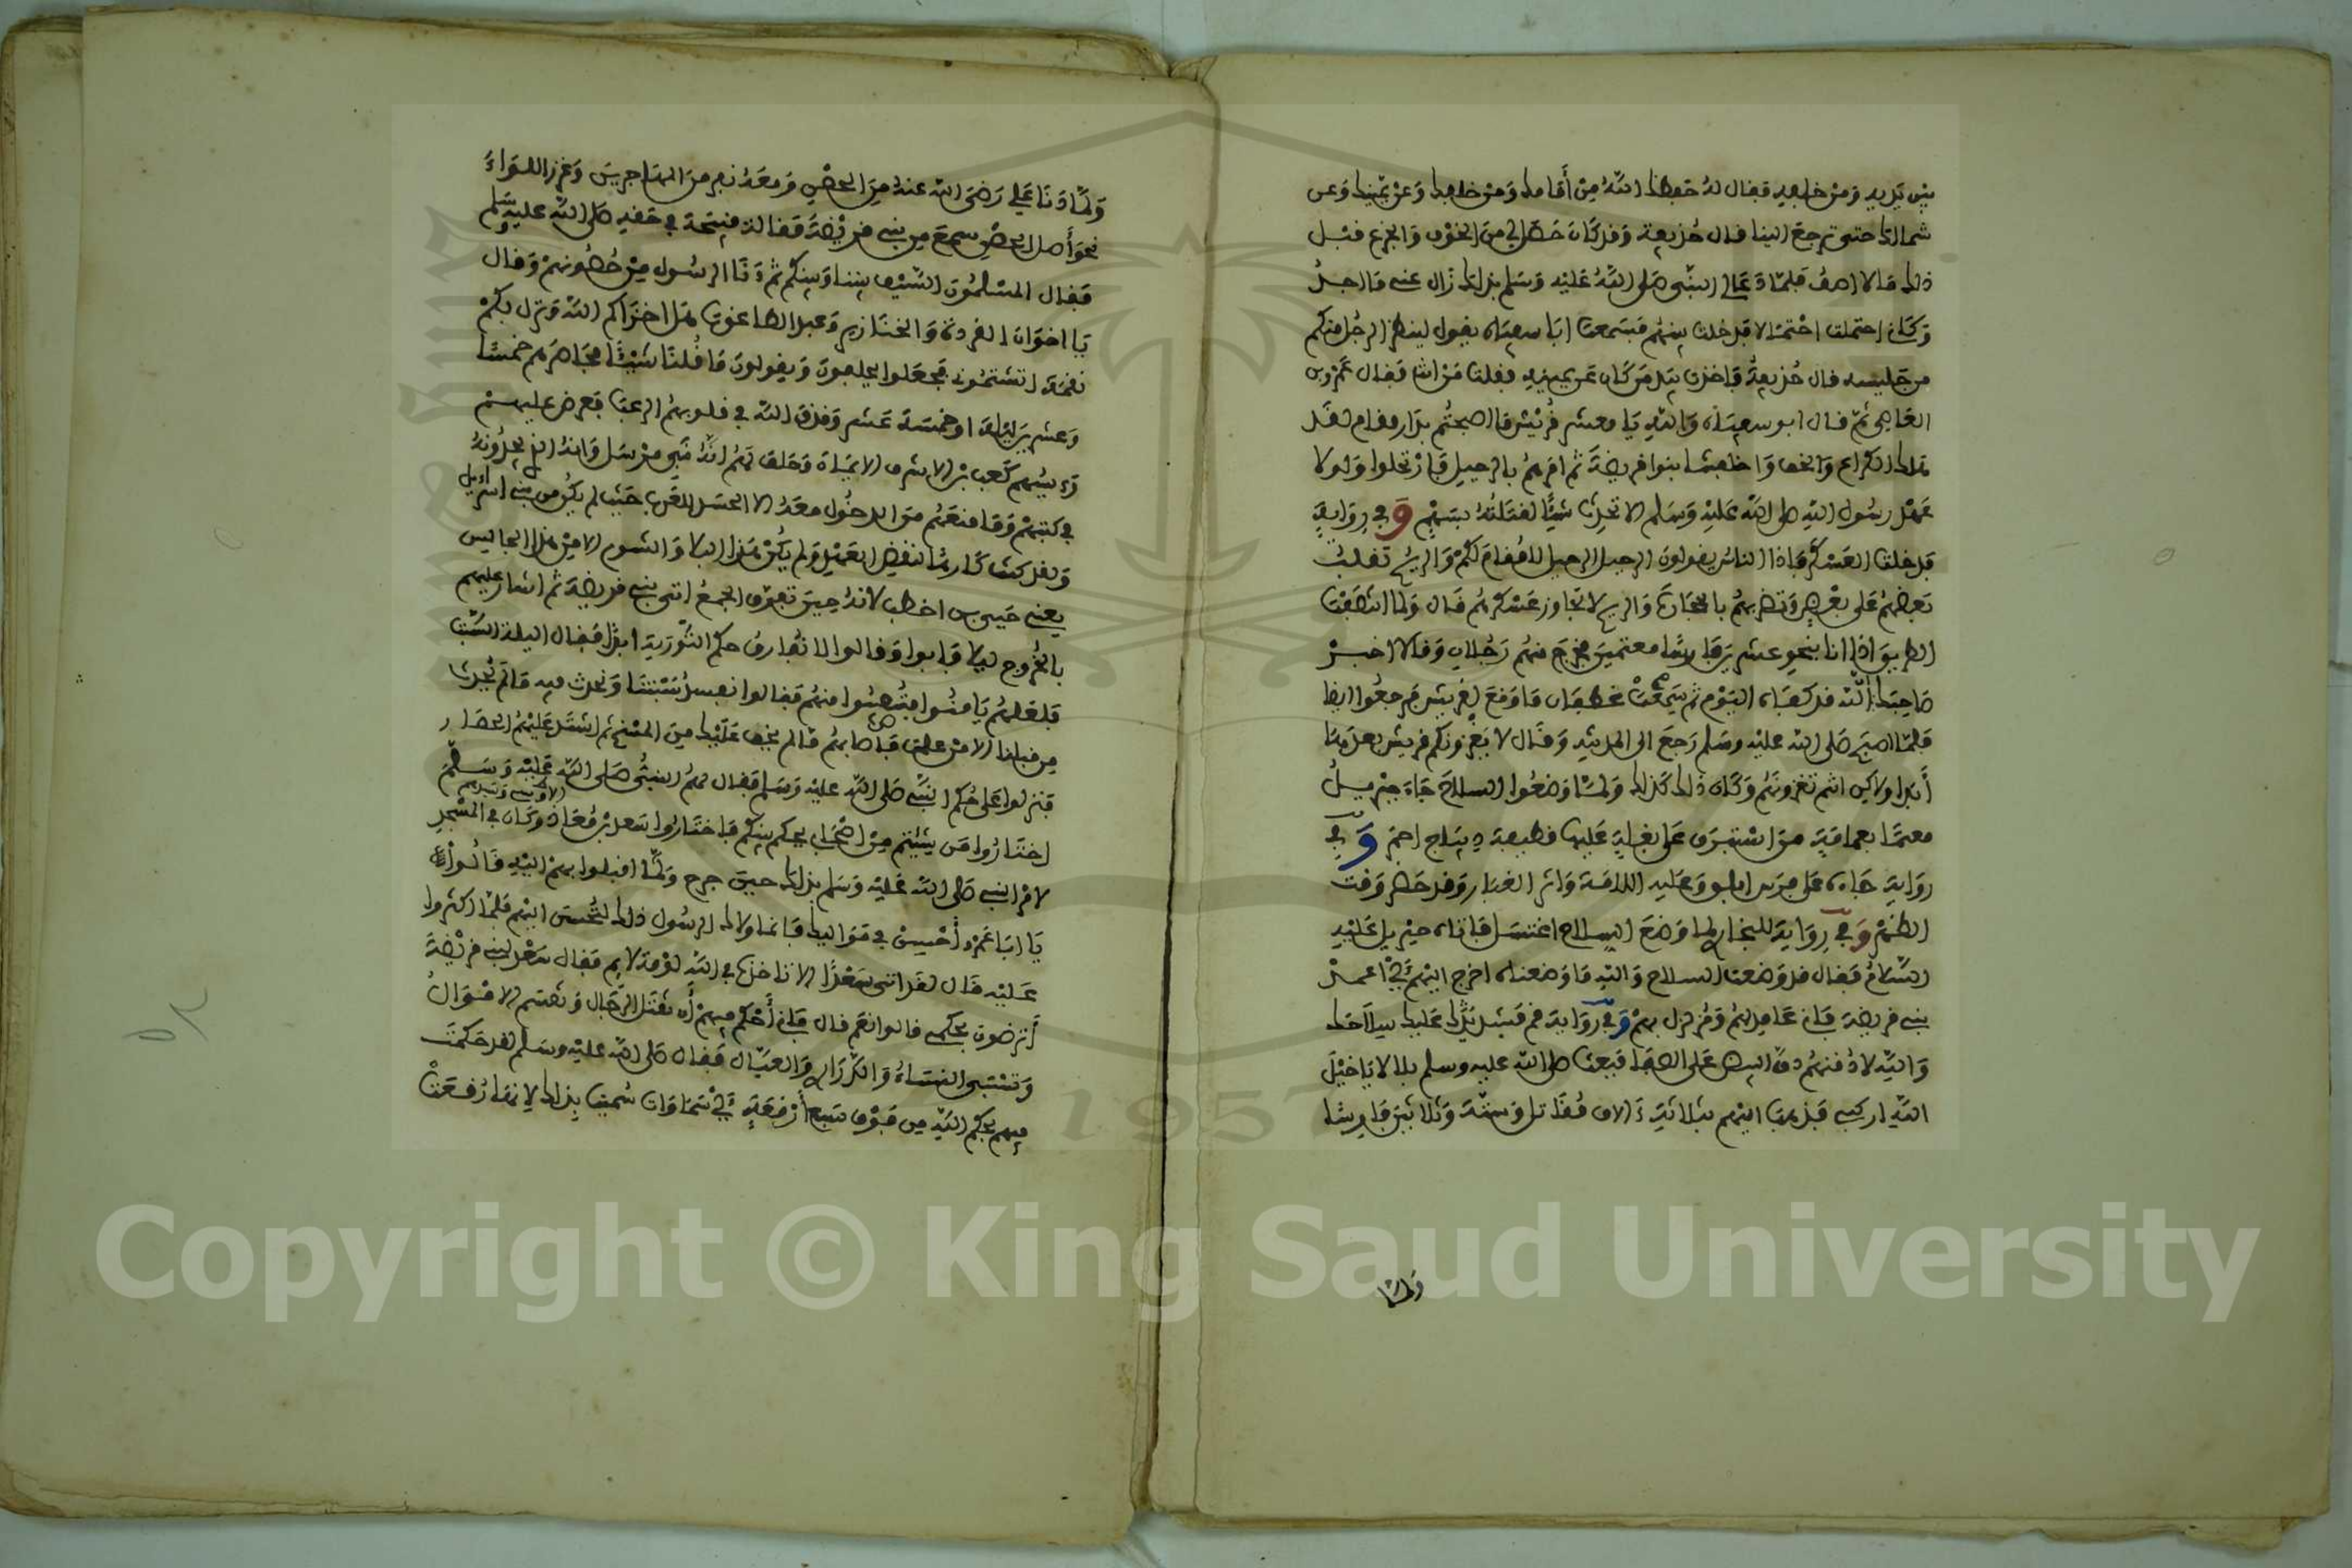 بين يديه ومن خلفه فقال له حفظك الله من أمامك ومن خلفك وعن يمينك وعن
شمالك حتى ترجع الينا قال حذيفة وقد كان حصل لي من الخوف والجزع قبل
ذلك ما لا اصف فلما دعا لي النبي صلى الله عليه وسلم بذلك زال عني ما اجد
وكأني احتملت احتمالا فدخلت بينهم فسمعت ابا سفيان يقول لينظر الرجل منكم
من جليسه قال حذيفة فاخذت بيد من كان عن يميني فقلت من انت فقال عمرو بن
العاصي ثم قال ابو سفيان والله يا معشر قريش ما اصبحتم بدار مقام لقد
هلك الكراع والخف واخلفتنا بنوا قريضة ثم امرهم بالرحيل فارتحلوا ولولا
عهد رسول الله صلى الله عليه وسلم لا تحدث شيئا لقتلته بسهم وفي رواية
فدخلت العسكر فاذا الناس يقولون الرحيل الرحيل لا مقام لكم والريح تقلب
بعضهم على بعض وتضربهم بالحجارة والريح لا تجاوز عسكرهم قال ولما انتصفت
الطريق اذا انا بنحو عشرين فارسا معتمين فخرج منهم رجلان وقالا اخبر
صاحبك ان الله قد كفاه اليوم ثم سمعت غطفان ما وقع لقريش فرجعوا ايضا
فلما اصبح صلى الله عليه وسلم رجع الى المدينة وقال لا يغزونكم قريش بعدها
أبدا ولاكن انتم تغزونهم وكان ذلك كذلك ولما وضعوا السلاح جاء جبريل
معتما بعمامة من استبرق على بغلة عليها قطيفة ديباج احمر وفي
رواية جاءه على فرس ابلق وعليه اللامة واثر الغبار وقد حضر وقت
الظهر وفي رواية للبخاري لما وضع السلاح اغتسل فاتاه جبريل عليه
السلام فقال قد وضعت السلاح والله ما وضعناه اخرج اليهم اعمد
بني قريضة فاني عامد اليهم ومزلزل بهم وفي رواية قم فشد عليك سلاحك
والله لادقنهم دق البيض على الصفا فبعث صلى الله عليه وسلم بلالا يا خيل
الله اركبي فذهب اليهم بثلاثة ءالاف مقاتل وستة وثلاثين فارسا
ولما
ولما دنا علي رضي الله عنه من الحصن ومعه نفر من المهاجرين وغرز اللواء
نحو أصل الحصن سمع من بني قريضة مقالة قبيحة في حقه صلى الله عليه وسلم
فقال المسلمون السيف بيننا وبينكم ثم دنا الرسول من حصونهم وقال
يا اخوان القردة والخنازير وعبد الطاغوت هل اخزاكم الله ونزل بكم
نقمة اتشتموني فجعلوا يحلفون ويقولون ما قلنا شيئا فحاصرهم خمسا
وعشرين ليلة او خمسة عشر وقذف الله في قلوبهم الرعب فعرض عليهم
رءيسهم كعب بن الاشرف الايمان وحلف لهم انه نبي مرسل وانه الذي يجدونه
في كتبهم وما منعهم من الدخول معه الا الحسد للعرب حيث لم يكن من بني اسرائيل
ولقد كنت كارها لنقض العهد ولم يكن هذا البلا والشوم الا من هذا الجاليس
يعني حيي بن اخطب لانه حين تفرق الجمع اتى بني قريضة ثم اشار عليهم
بالخروج ليلا فابوا وقالوا لا نفارق حكم التورية ابدا فقال الليلة السبت
فلعلهم يامنوا فتصيبوا منهم فقالوا نفسد سبتنا ونحدث فيه ما لم يحدث
من قبلنا الا من علمت فاصابهم ما لم يخف عليك من المسخ ثم اشتد عليهم الحصار
فنزلوا على حكم النبي صلى الله عليه وسلم فقال لهم النبي صلى الله عليه وسلم
اختاروا من شيئتم من اصحابي يحكم بينكم فاختاروا سعد بن معاذ وكان في المسجد
لامر النبي صلى الله عليه وسلم بذلك حين جرح ولما اقبلوا بهم اليه قالوا
يا ابا عمرو أحسن في مواليك فانما ولاك الرسول ذلك لتحسن اليهم فلما اكثروا
عليه قال لقد اتى سعدا الا تاخذه في الله لومة لايم فقال سعد لبني قريضة
أترضون بحكمي قالوا نعم قال فاني أحكم فيهم أن تقتل الرجال وتقسم الاموال
وتستبى النساء والذراري والعيال فقال صلى الله عليه وسلم لقد حكمت
فيهم بحكم الله من فوق سبع أرقعة أي سماوات سميت بذلك لانها رقعت